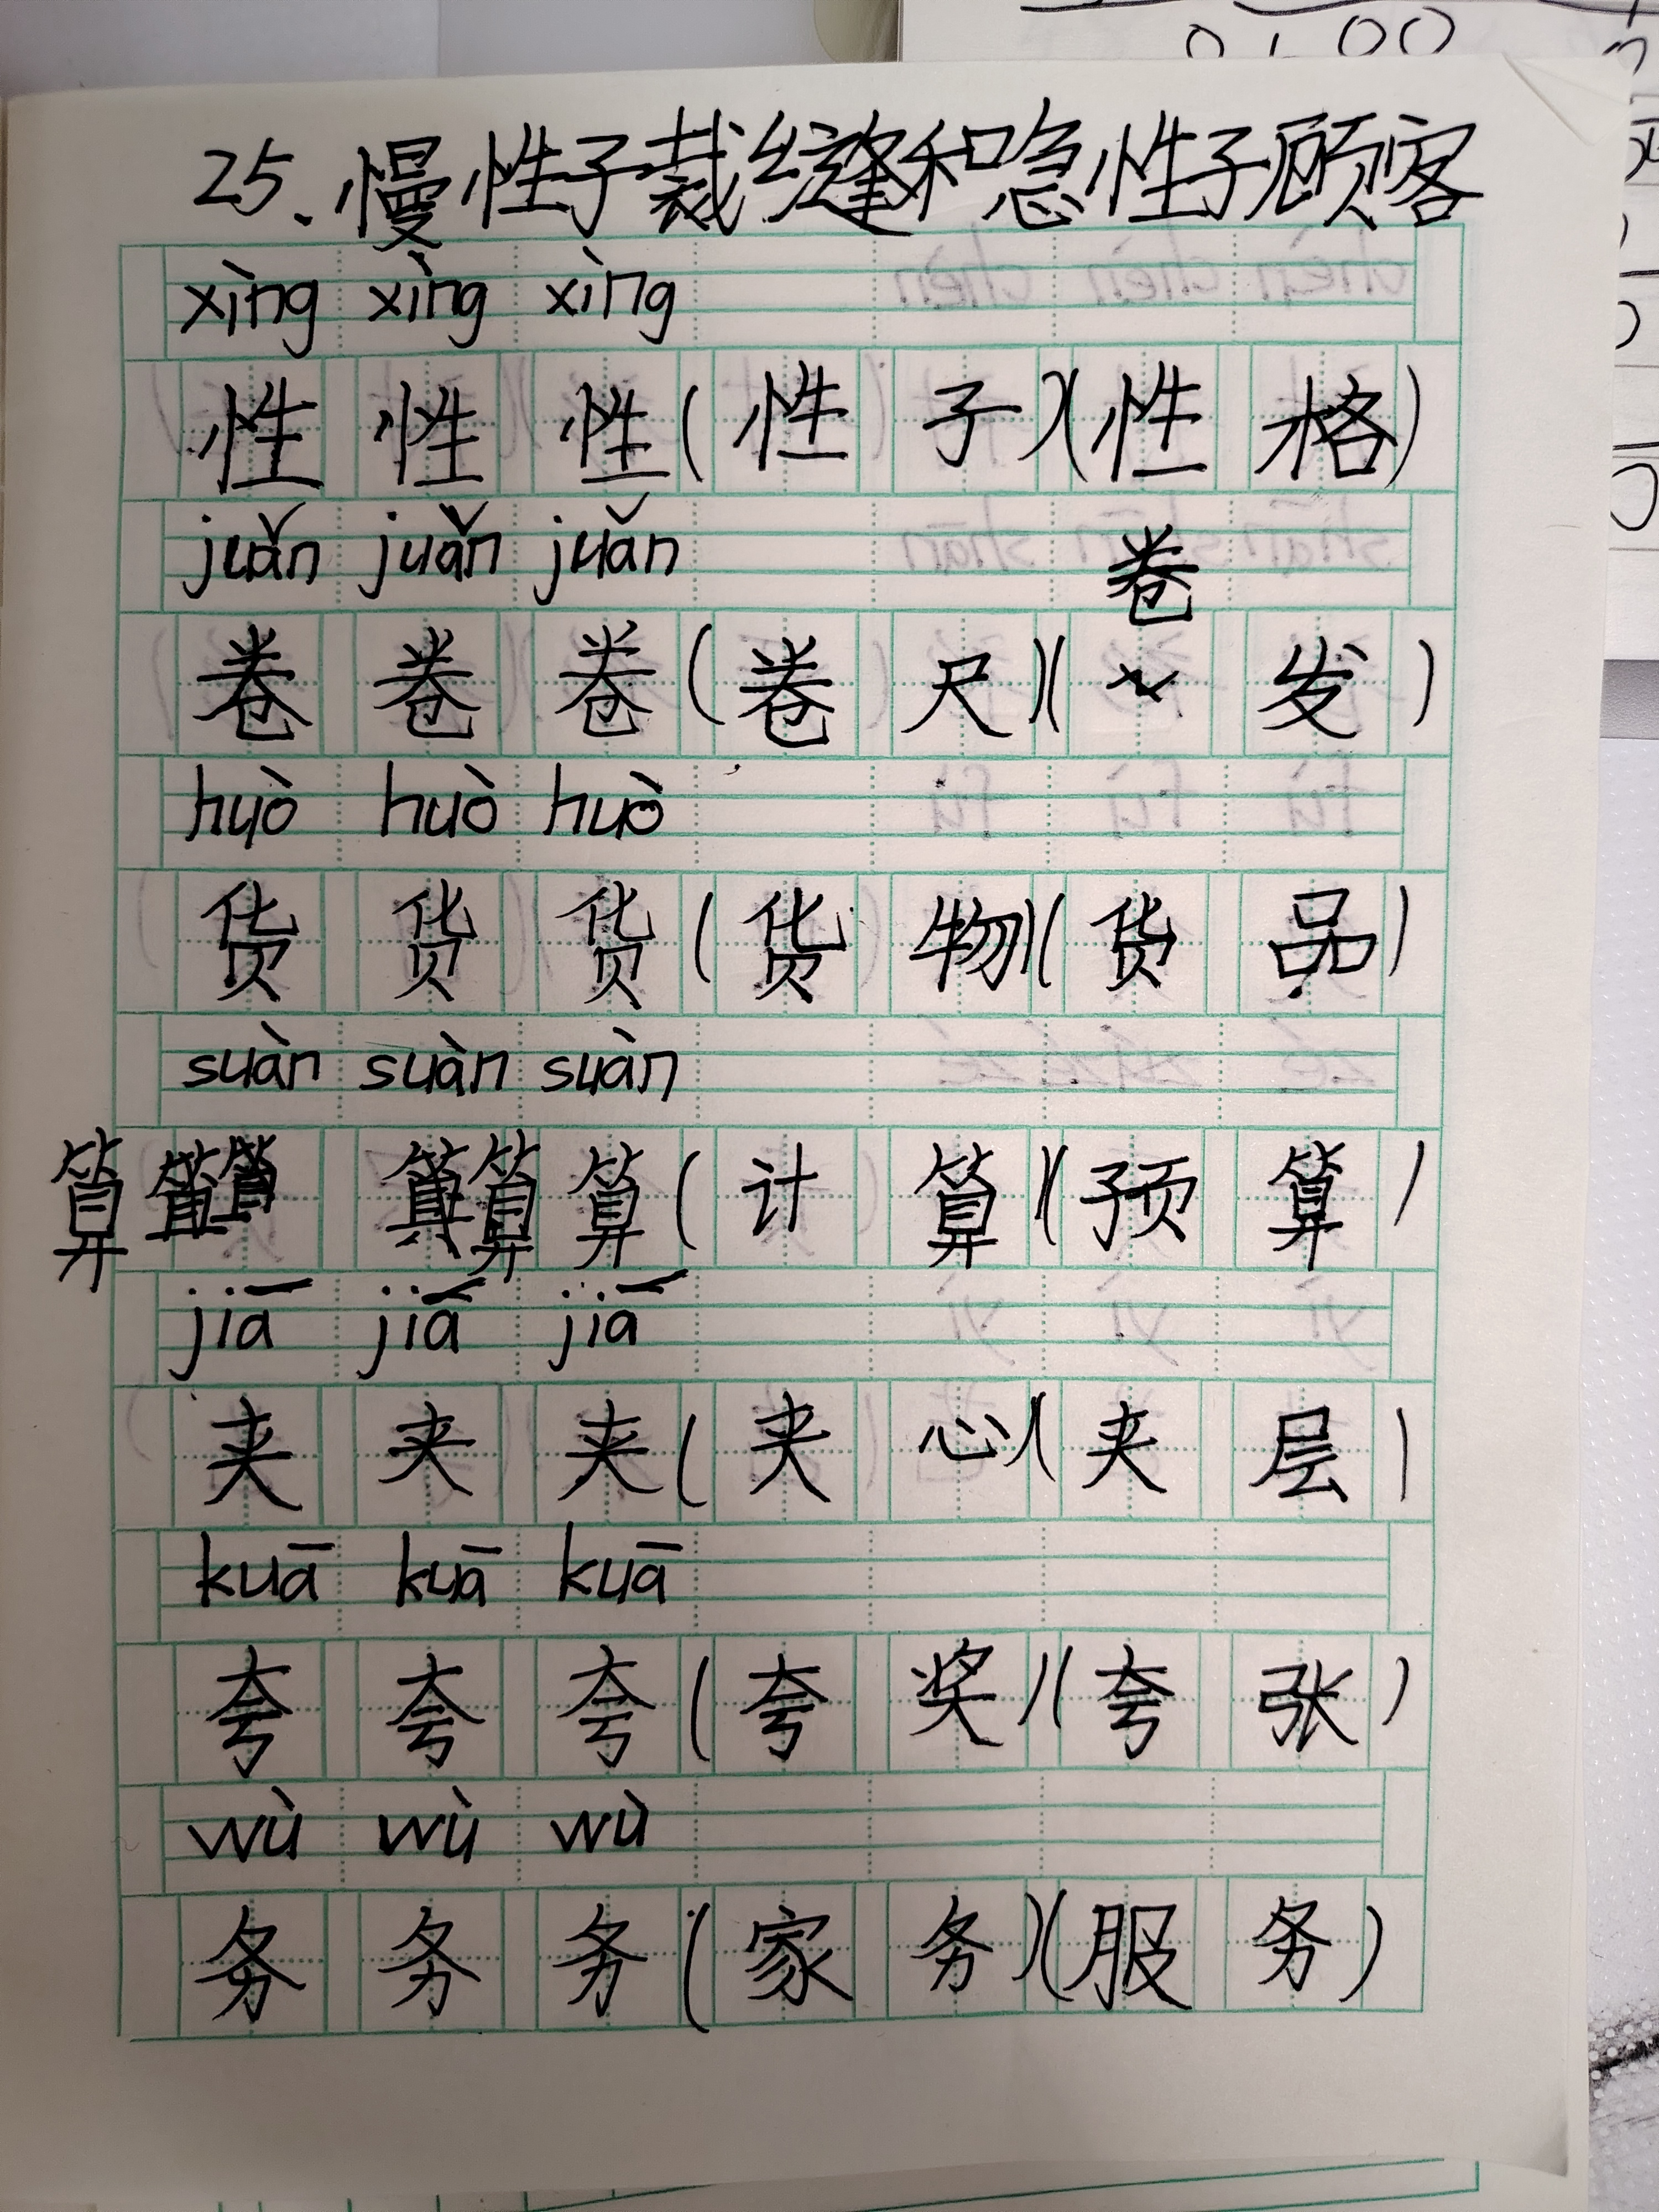 25.慢性子裁缝和急性子顾客
xìng xìng xìng
性 性 性(性 子)(性 格)
juǎn juǎn juǎn
卷
卷 卷 卷(卷 尺)( 发)
huò huò huò
货 货 货(货 物)(货 品)
suàn suàn suàn
算 算 算 算 算 算(计 算)(预 算)
jiā jiā jiā
夹 夹 夹(夹 心)(夹 层)
kuā kuā kuā
夸 夸 夸(夸 奖)(夸 张)
wù wù wù
务 务 务(家 务)(服 务)